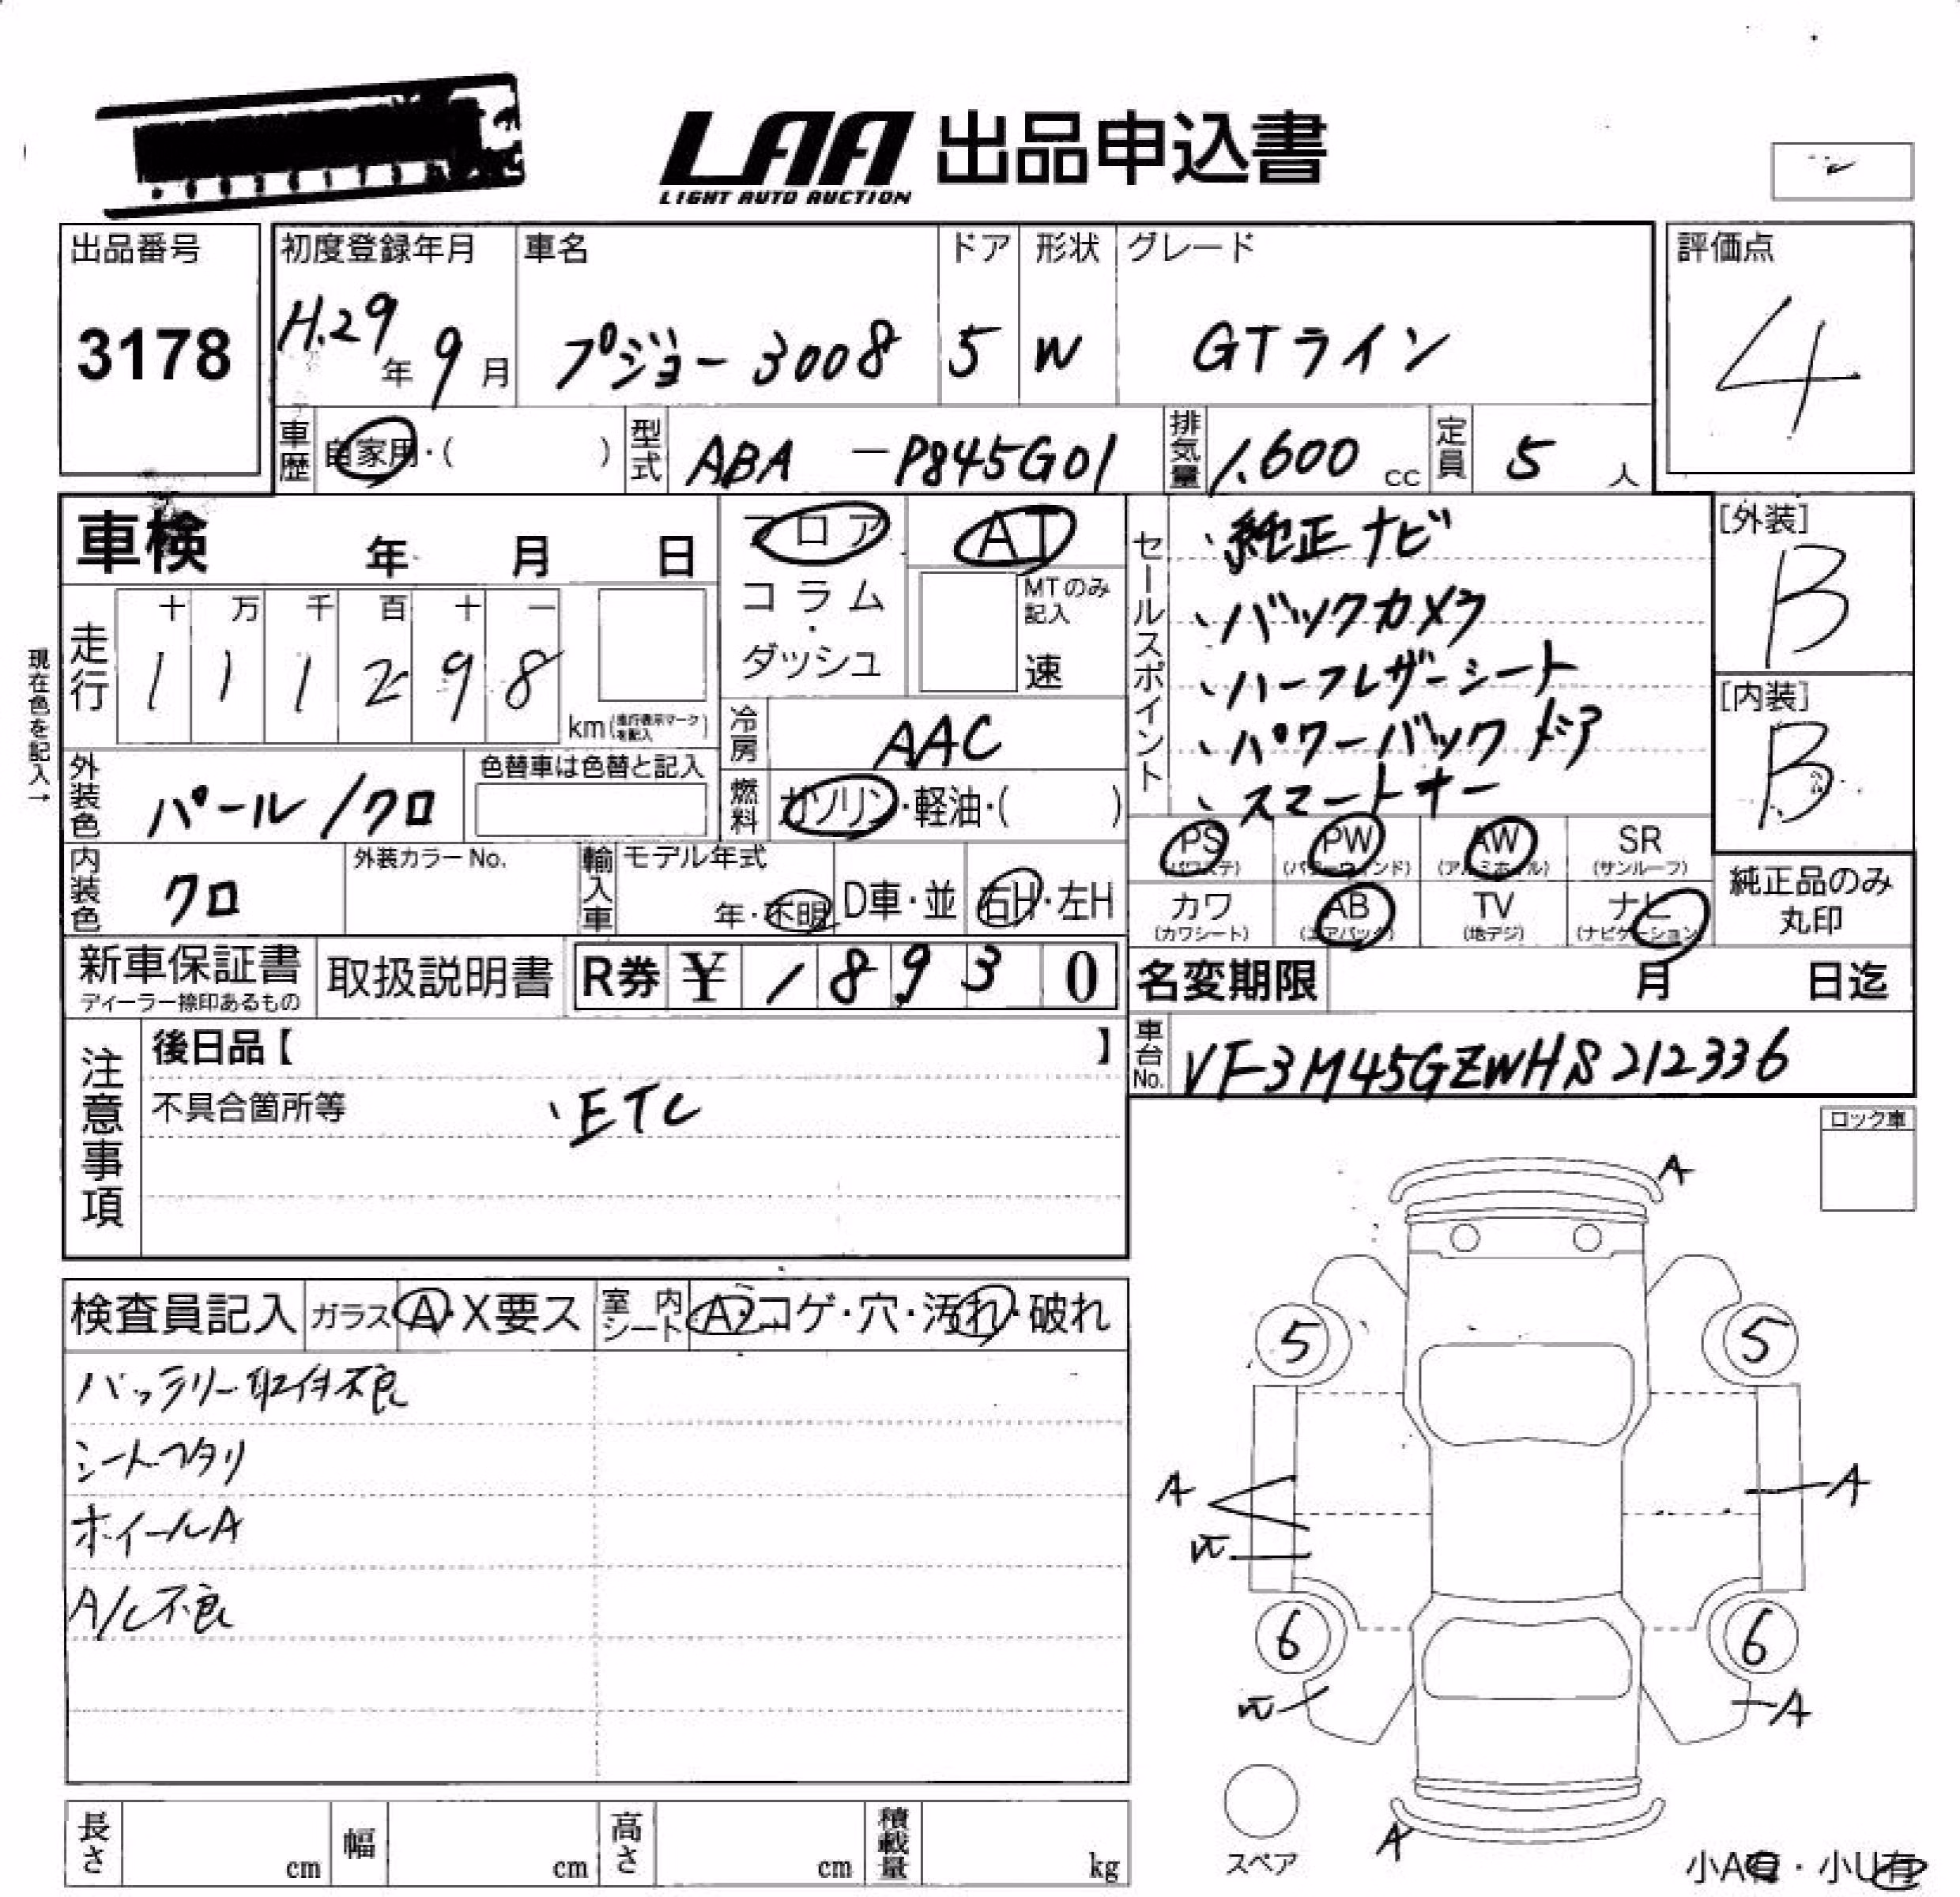 LAA 出品申込書
LIGHT AUTO AUCTION
出品番号
3178
初度登録年月
H.29年 9月
車名
プジョー 3008
ドア
5
形状
W
グレード
GTライン
評価点
4
車歴
自家用・( )
型式
ABA -P845G01
排気量
1.600 cc
定員
5 人
車検 年 月 日
フロア
コラム・
ダッシュ
AT
MTのみ
記入
速
セールスポイント
、純正ナビ
、バックカメラ
、ハーフレザーシート
、パワーバックドア
、スマートキー
[外装]
B
[内装]
B
現在色を記入→
走行
十 万 千 百 十 一
1 1 1 2 9 8
km(走行表示マークを記入)
冷房
AAC
外装色
パール/クロ
色替車は色替と記入
燃料
ガソリン・軽油・( )
PS (パワステ) PW (パワーウィンド) AW (アルミホイル) SR (サンルーフ)
カワ (カワシート) AB (エアバック) TV (地デジ) ナビ (ナビゲーション)
純正品のみ
丸印
内装色
クロ
外装カラーNo.
輸入車
モデル年式
年・不明
D車・並
右H・左H
新車保証書
ディーラー捺印あるもの
取扱説明書
R券 ¥ 1 8 9 3 0
名変期限 月 日迄
車台No.
VF3M45GZWHS212336
注意事項
後日品【 】
不具合箇所等 、ETC
ロック車
検査員記入 ガラス A・X要ス 室内シート A・コゲ・穴・汚れ・破れ
バッテリー取付不良
シートヘタリ
ホイールA
A/C不良
A
5 5
A A
6 6
A
A
スペア
小A有・小U有
長さ cm 幅 cm 高さ cm 積載量 kg